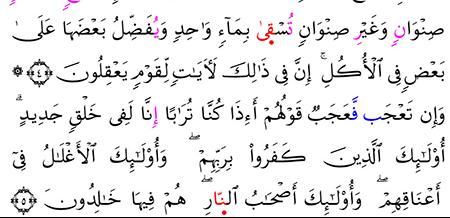 صِنْوَانٖ وَغَيْرِ صِنْوَانٖ تُسْقِىٰ بِمَآءٖ وَٰحِدٖ وَيُفَضِّلُ بَعْضَهَا عَلَىٰ
بَعْضٖ فِي اِ۬لْأُكُلِۚ إِنَّ فِي ذَٰلِكَ لَأٓيَٰتٖ لِّقَوْمٖ يَعْقِلُونَ ۝٤ ۞
وَإِن تَعْجَب فَّعَجَبٞ قَوْلُهُمْ أَءِذَا كُنَّا تُرَٰبًا إِنَّا لَفِي خَلْقٖ جَدِيدٍۗ
أُوْلَٰٓئِكَ اَ۬لَّذِينَ كَفَرُواْ بِرَبِّهِمْۖ وَأُوْلَٰٓئِكَ اَ۬لْأَغْلَٰلُ فِيٓ
أَعْنَاقِهِمْۖ وَأُوْلَٰٓئِكَ أَصْحَٰبُ اُ۬لنّ۪ارِۖ هُمْ فِيهَا خَٰلِدُونَ ۝٥